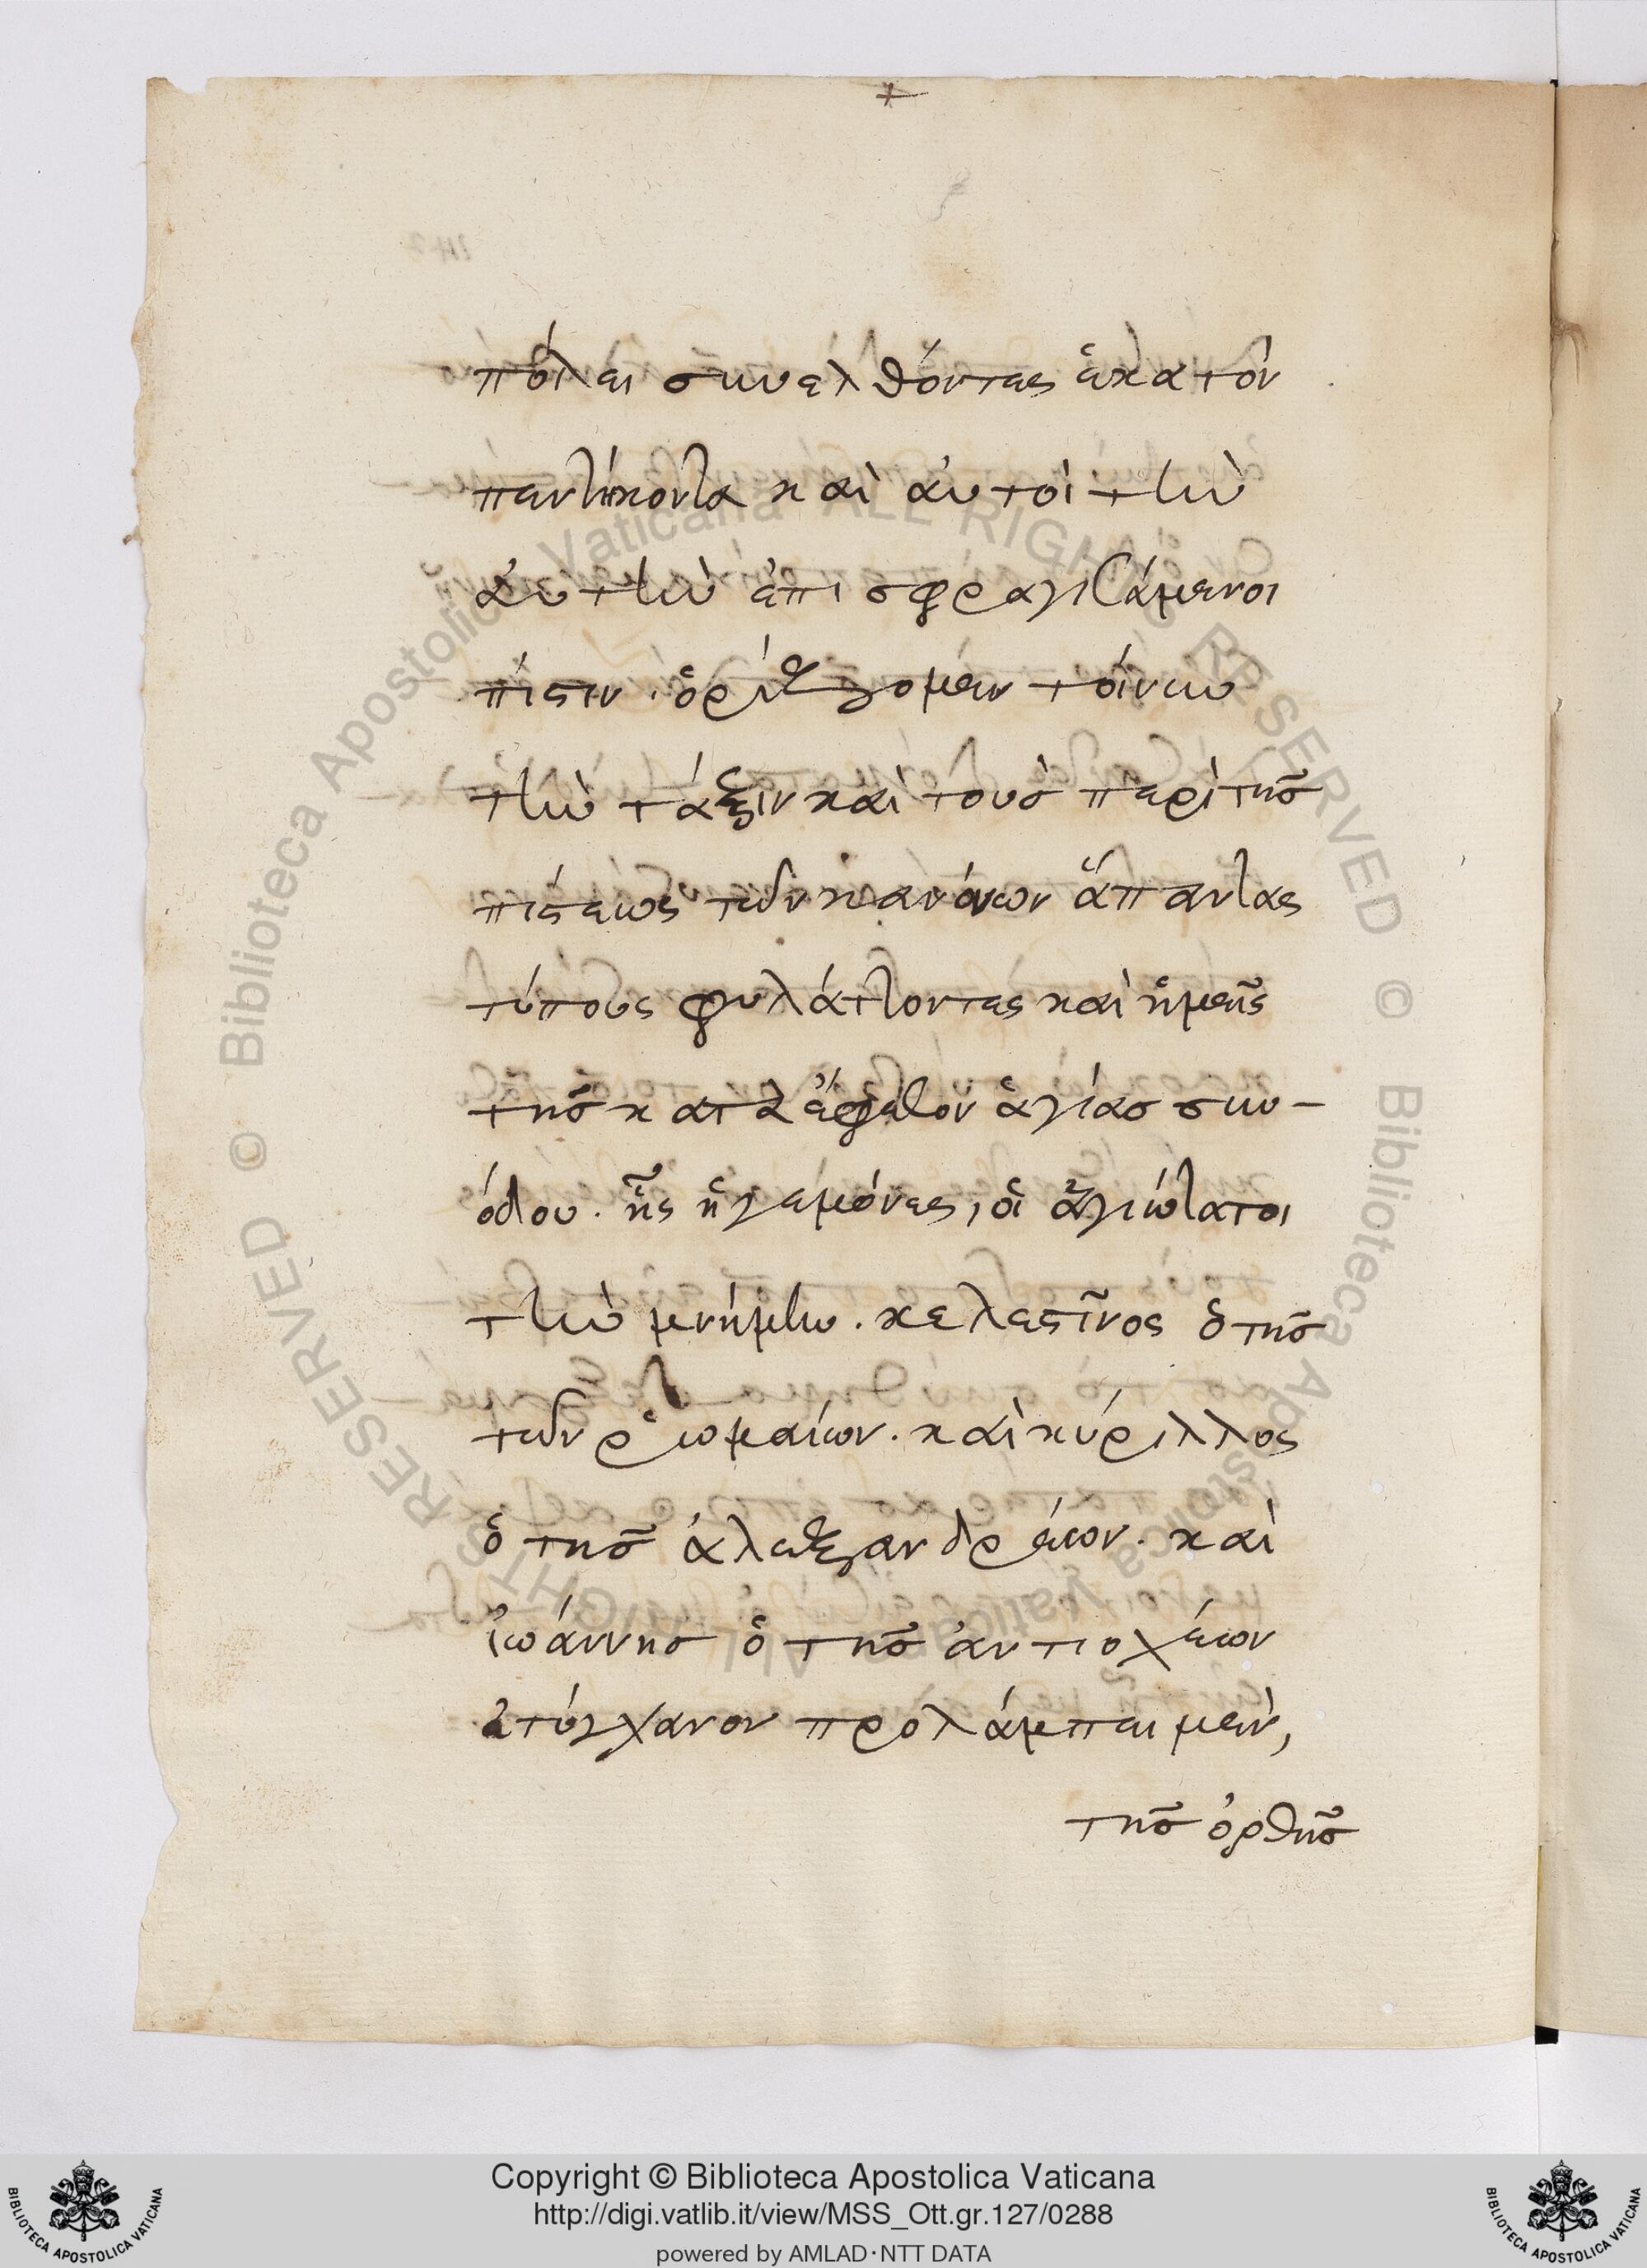 πόλει συνελθόντες ἑκατὸν
πεντήκοντα καὶ αὐτοὶ τὴν
αὐτὴν ἐπισφραγισάμενοι
πίστιν. ὁρίζομεν τοίνυν
τὴν τάξιν καὶ τοὺς περὶ τῆς
πίστεως τῶν κανόνων ἅπαντας
τύπους φυλάττοντες καὶ ἡμεῖς
τῆς κατὰ ἔφεσον ἁγίας συν-
όδου. ἧς ἡγεμόνες, οἱ ἁγιώτατοι
τὴν μνήμην. κελεστῖνος ὁ τῆς
τῶν ῥωμαίων. καὶ κύριλλος
ὁ τῆς ἀλεξανδρέων. καὶ
ἰωάννης ὁ τῆς ἀντιοχέων
ἐτύγχανον προλάμπει μὲν,
τῆς ὀρθῆς
Biblioteca Apostolica Vaticana ALL RIGHTS RESERVED ©
Copyright © Biblioteca Apostolica Vaticana
http://digi.vatlib.it/view/MSS_Ott.gr.127/0288
powered by AMLAD·NTT DATA
BIBLIOTECA APOSTOLICA VATICANA
BIBLIOTECA APOSTOLICA VATICANA